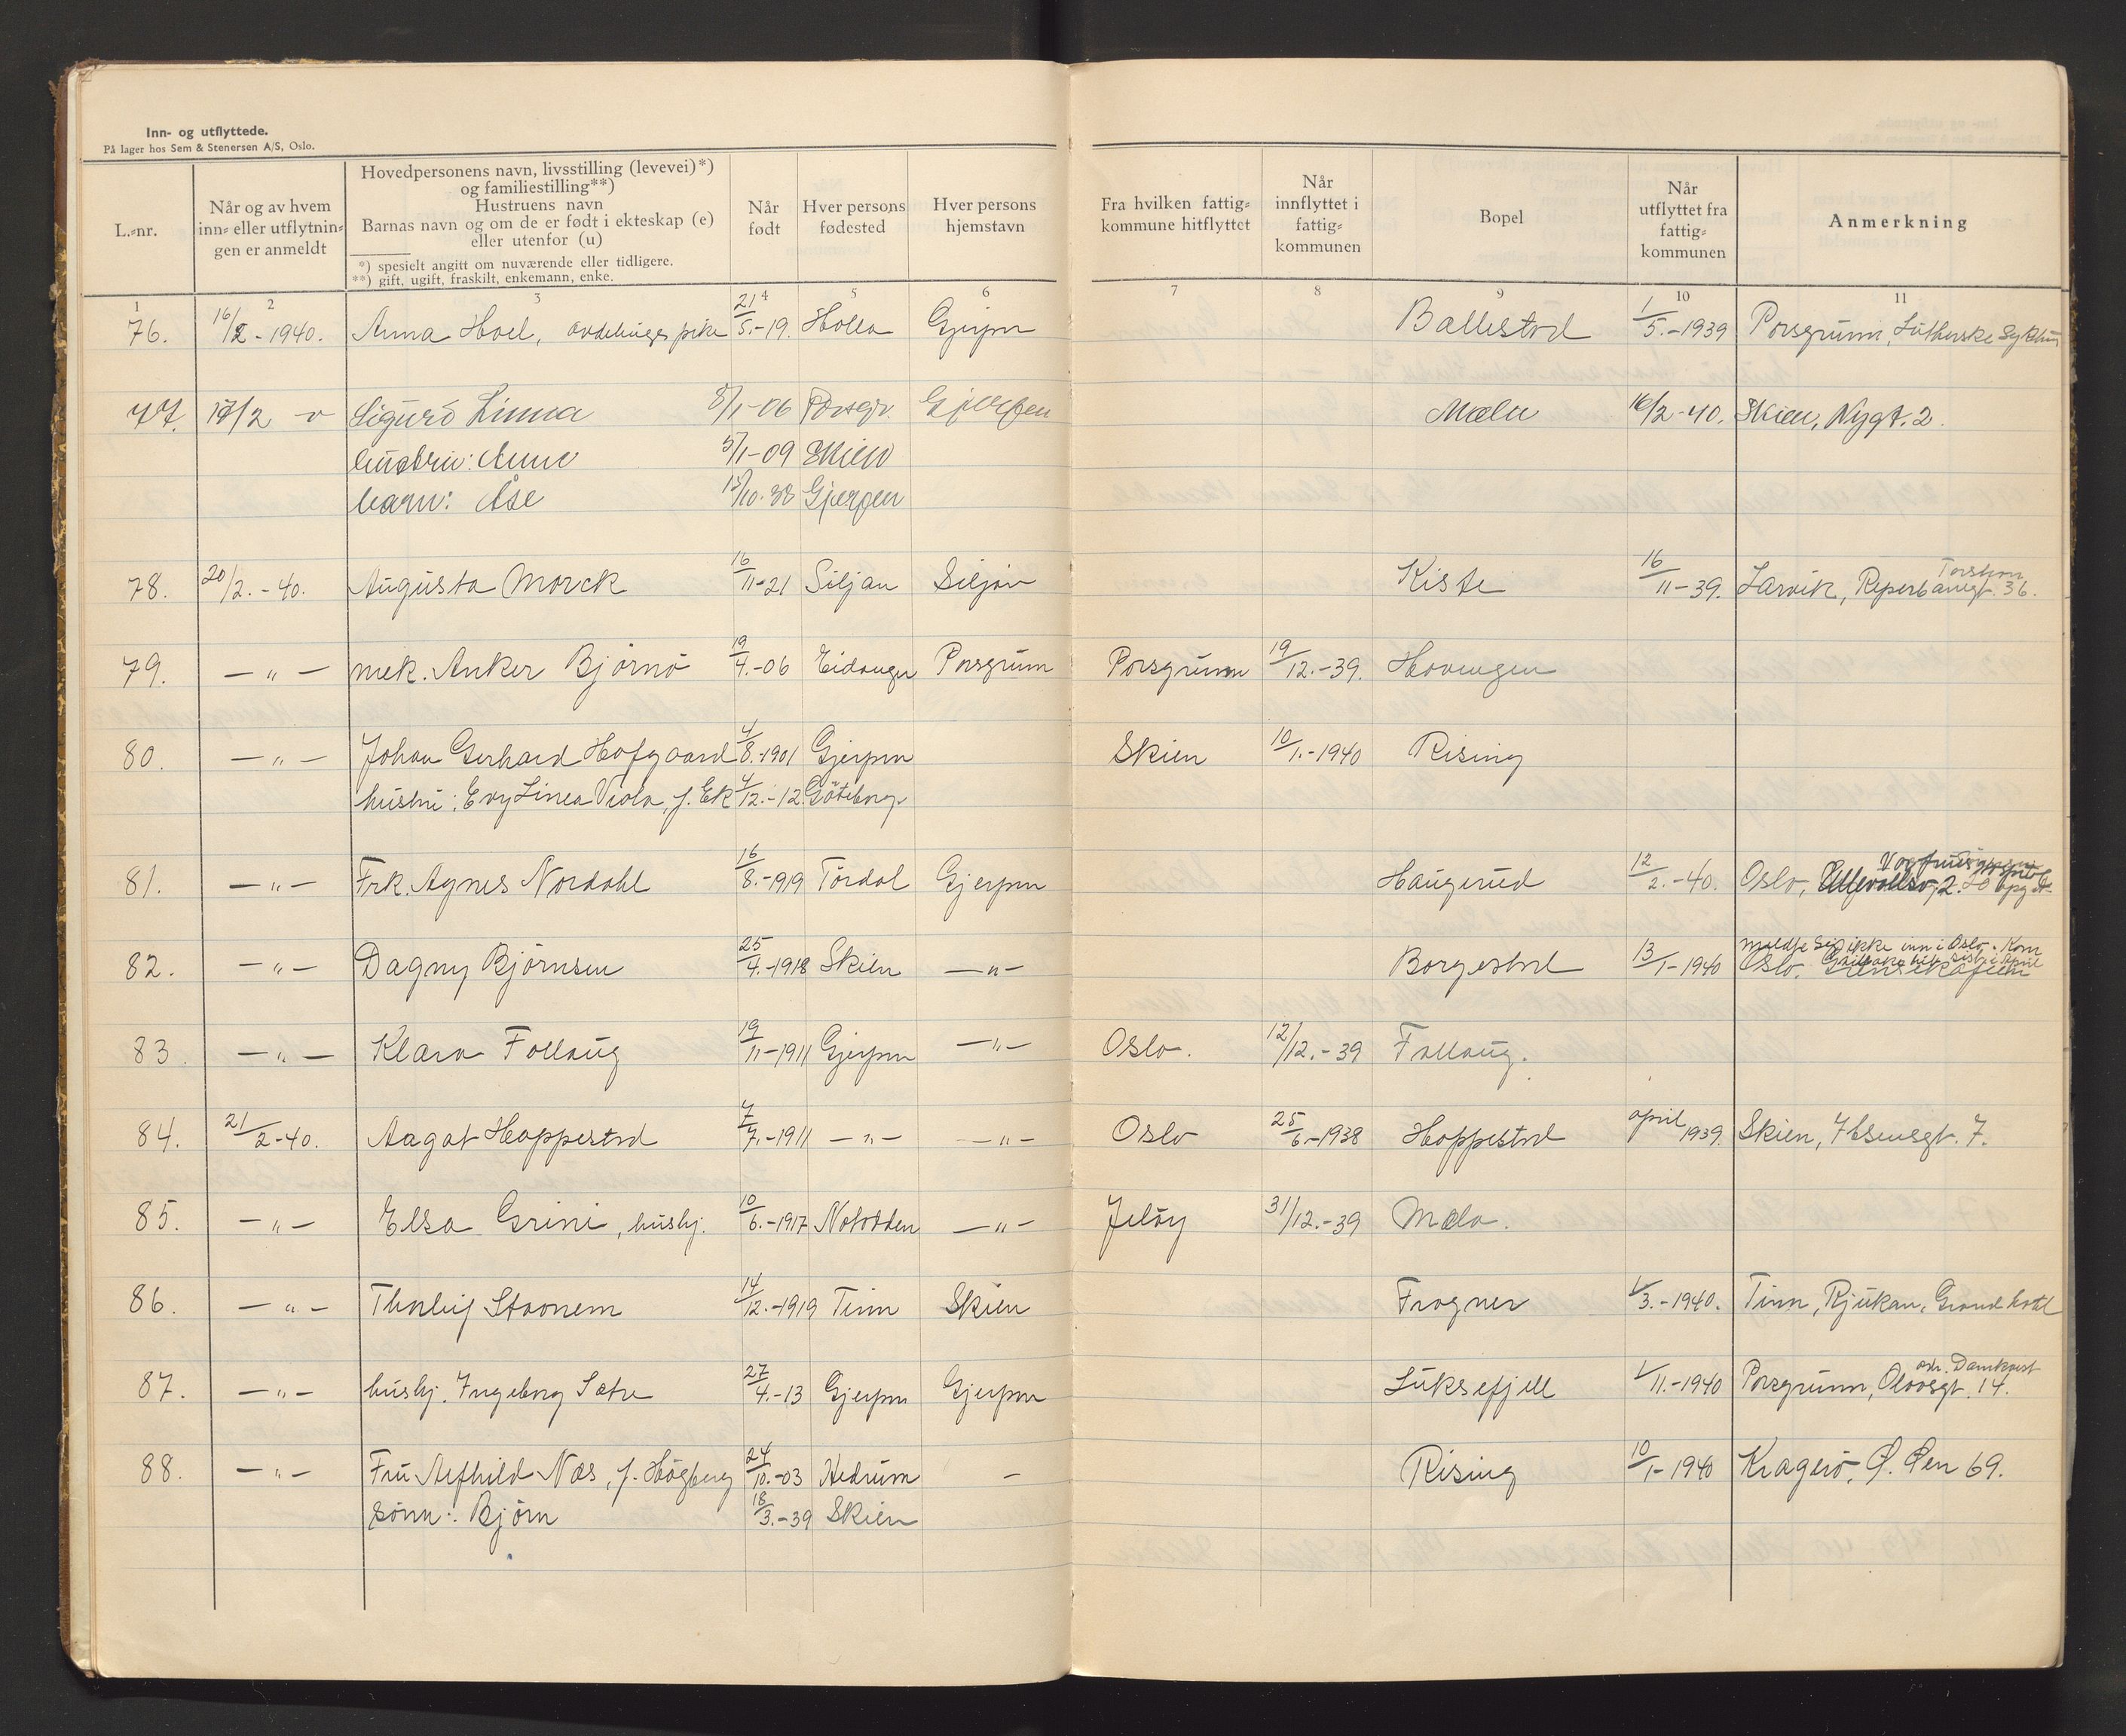 Inn- og utflyttede.
På lager hos Sem & Stenersen A/S, Oslo.
L.-nr.
Når og av hvem inn- eller utflytnin-gen er anmeldt
Hovedpersonens navn, livsstilling (levevei)*)
og familiestilling**)
Hustruens navn
Barnas navn og om de er født i ekteskap (e)
eller utenfor (u)
*) spesielt angitt om nuværende eller tidligere.
**) gift, ugift, fraskilt, enkemann, enke.
Når født
Hver persons fødested
Hver persons hjemstavn
Fra hvilken fattig-kommune hitflyttet
Når innflyttet i fattig-kommunen
Bopel
Når utflyttet fra fattig-kommunen
Anmerkning
1 2 3 4 5 6 7 8 9 10 11
76. 16/2-1940. Anna Hoel, avdelings pike 21/5.-19. Holla Gjerpen Ballestad 1/5.-1939 Porsgrunn, Lutherske Sykehus
77. 17/2 Sigurd Linna 3/1-06 Porsgr. Gjerpen Mæla 16/2-40. Skien, Nygt. 2.
hustru: Anna 5/1-09 Skien
barn: Åse 12/10.38 Gjerpen
78. 20/2.-40. Augusta Morck 16/11-21 Siljan Siljan Kiste 16/11-39. Larvik, Reperbanegt. 36.
79. —"— mek. Anker Bjørnø 19/4.-06 Eidanger Porsgrunn Porsgrunn 19/12.-39. Hovengen
80. —"— Johan Gerhard Hofgaard 4/8.-1901 Gjerpen Skien 10/1.-1940 Rising
hustru: Evy Linea Viola, f. Ek 4/12.-12. Göteborg.
81. —"— Frk. Agnes Nordahl 16/8.-1919 Tørdal Gjerpen Haugerud 12/2.-40. Oslo, Ullevållsv. 2.
82. —"— Dagny Bjørnsen 25/4.-1918 Skien —"— Borgestad 13/1-1940 meldte sig ikke inn i Oslo. Kom
tilbake hit sist i April
Oslo.
83. —"— Klara Follaug 19/11-1911 Gjerpen —"— Oslo. 12/12.-39 Follaug.
84. 21/2-40. Aagot Hoppestad 7/7.-1911 —"— —"— Oslo 25/6.-1938 Hoppestad april 1939. Skien, Ibsensgt. 7.
85. —"— Elsa Grini, hushj. 10/6.-1917 Notodden —"— Jeløy 31/12.-39 Mæla.
86. —"— Thorleif Staanem 14/12.-1919 Tinn Skien Frogner 1/3.-1940. Tinn, Rjukan, Grand hotel
87. —"— hushj. Ingeborg Sætre 27/4.-13 Gjerpen Gjerpen Luksefjell 1/11.-1940 Porsgrunn, Olavsgt. 14.
adr. Damkvist
88. —"— Fru Alfhild Næs, f. Høgberg 24/10.-03 Hedrum — Rising 10/1-1940 Kragerø, Ø. Øen 69.
sønn: Bjørn 18/3.-39 Skien